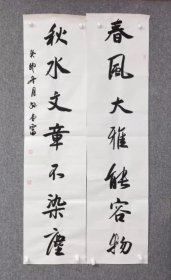 春風大雅能容物
秋水文章不染塵
癸卯年月